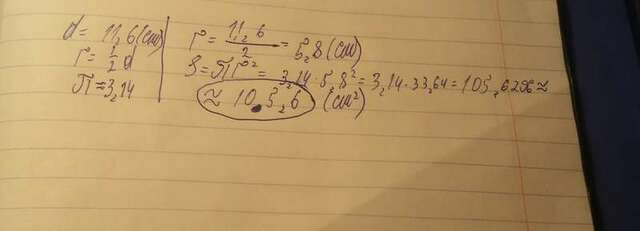 d = 11,6 (см)
r = 1/2 d
П = 3,14
r = 11,6/2 = 5,8 (см)
S = Пr² = 3,14 · 5,8² = 3,14 · 33,64 = 105,6296 ≈
≈ 105,6 (см²)